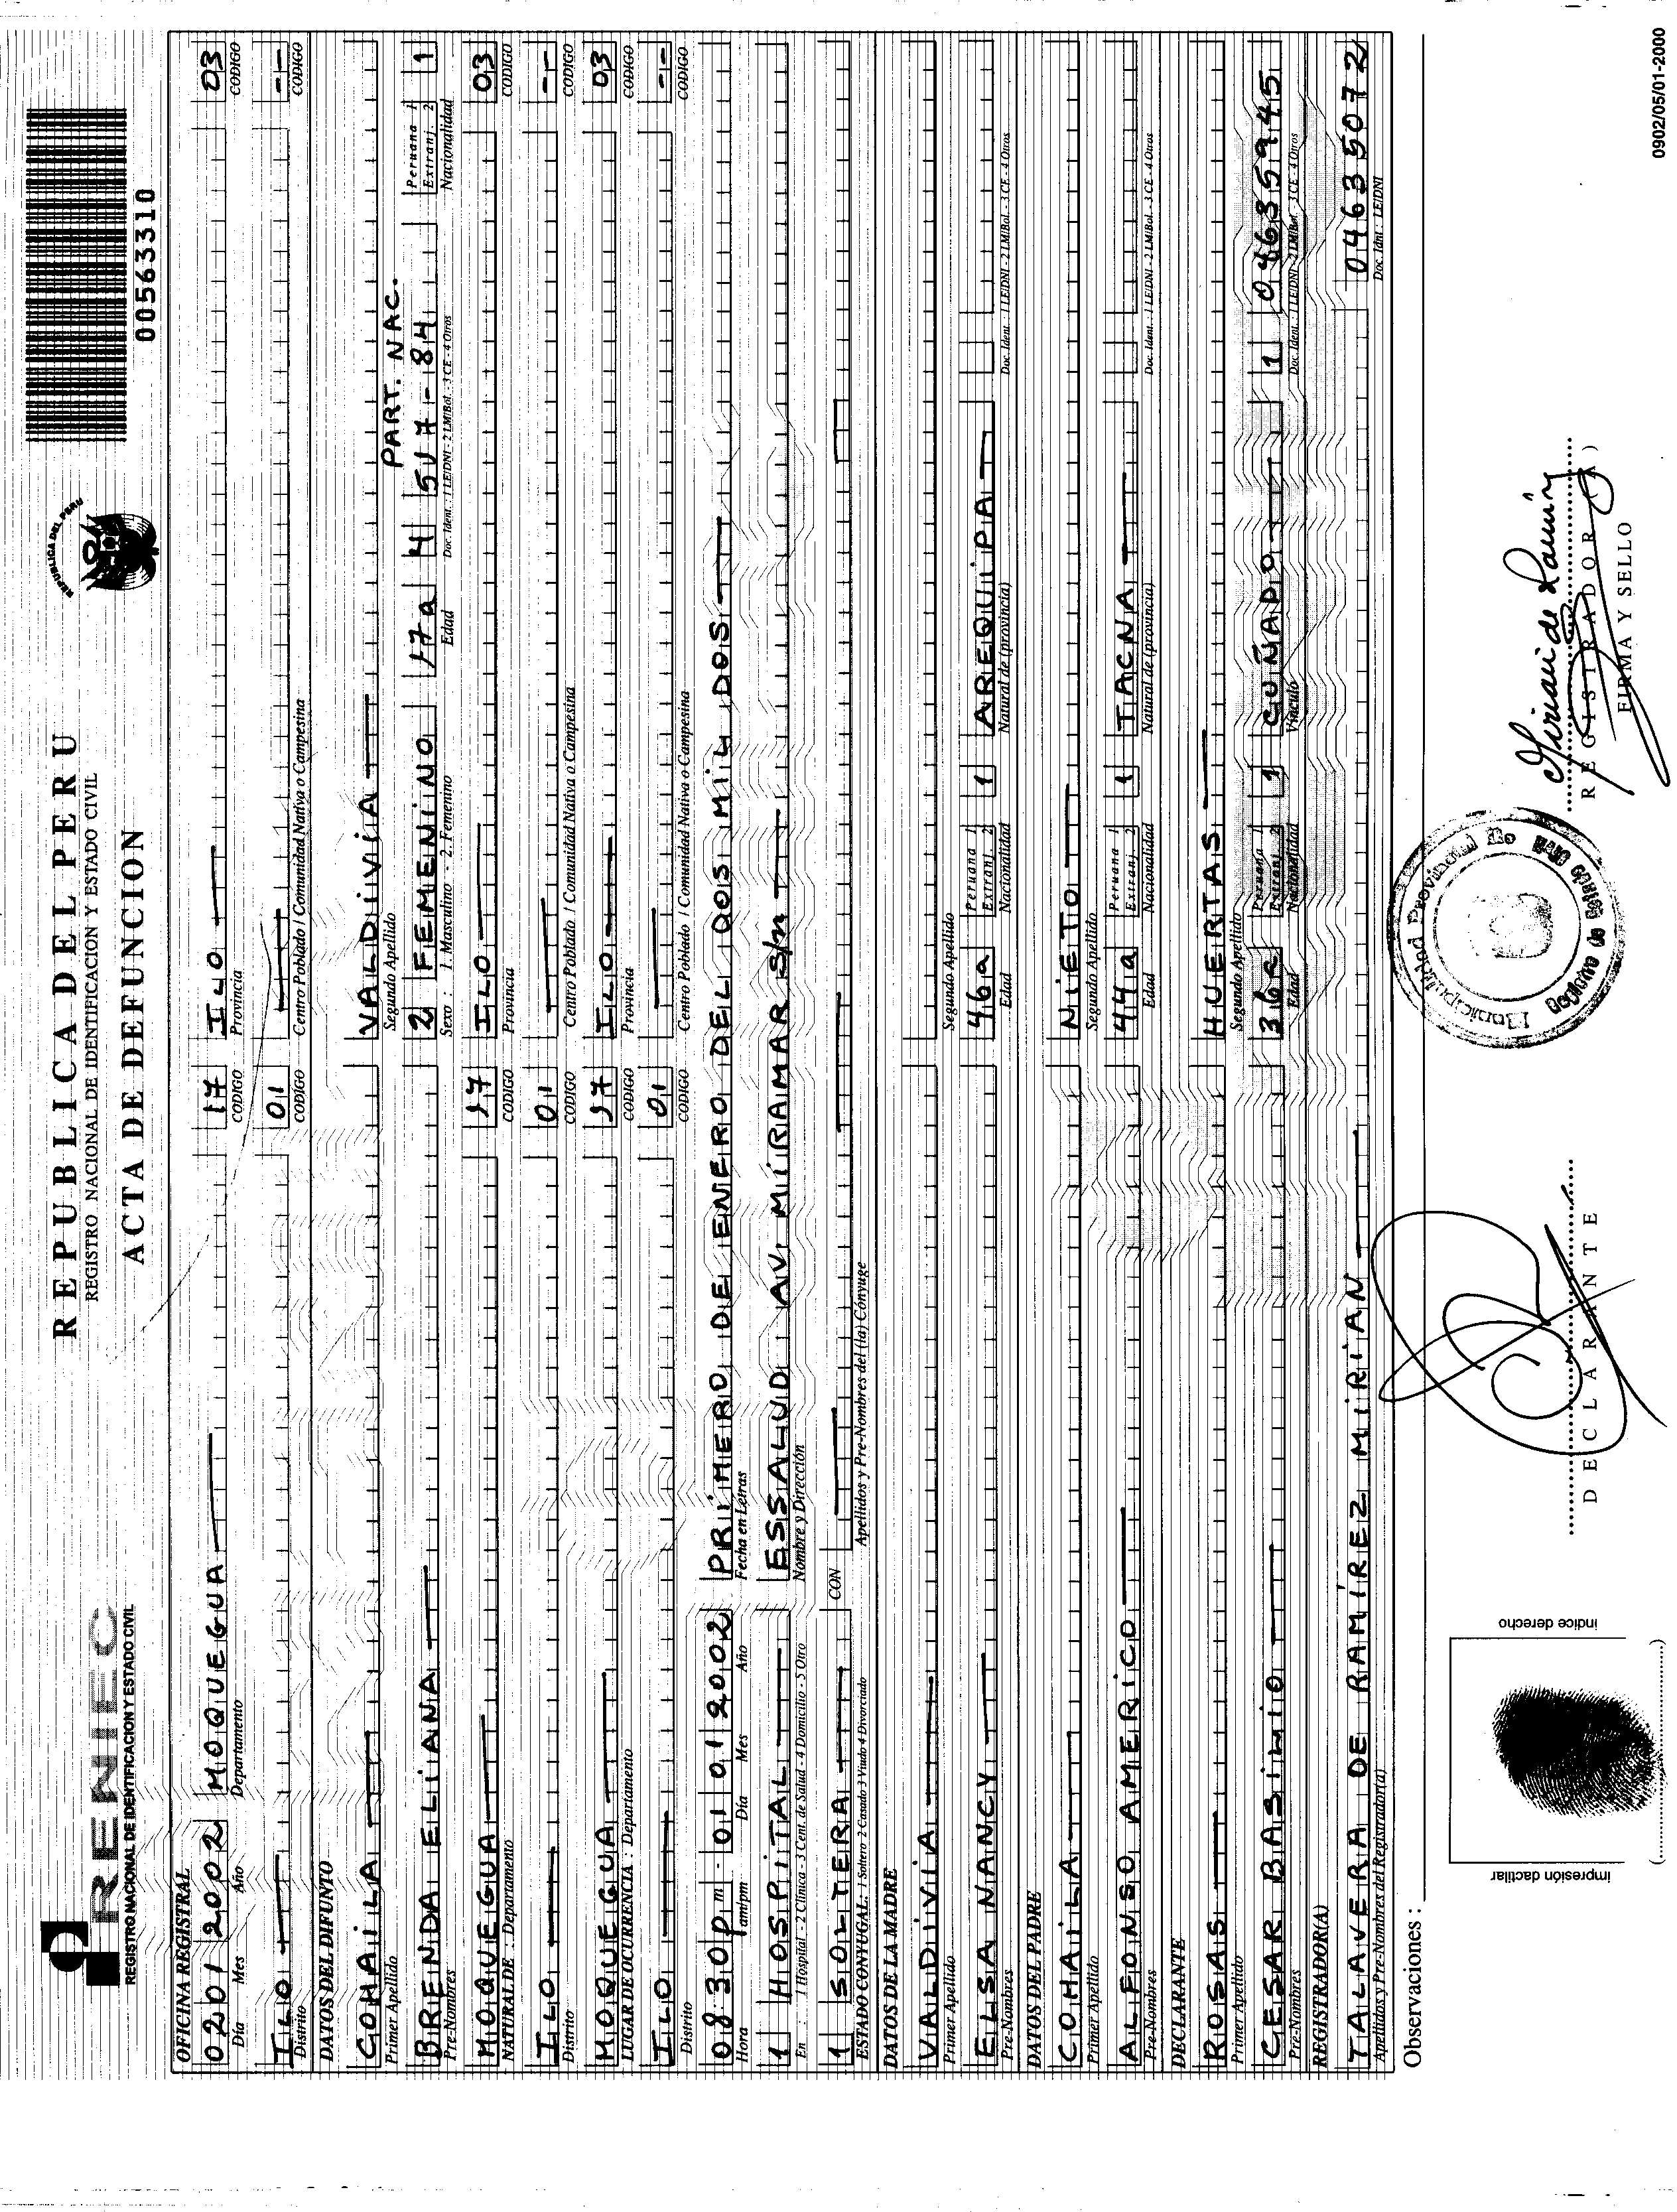 RENIEC
REGISTRO NACIONAL DE IDENTIFICACION Y ESTADO CIVIL
REPUBLICA DEL PERU
REGISTRO NACIONAL DE IDENTIFICACION Y ESTADO CIVIL
ACTA DE DEFUNCION
REPUBLICA DEL PERU
00563310
OFICINA REGISTRAL
02 01 2002 MOQUEGUA 17 ILO 03
Día Mes Año Departamento CODIGO Provincia CODIGO
ILO 01 --
Distrito CODIGO Centro Poblado / Comunidad Nativa o Campesina CODIGO
DATOS DEL DIFUNTO
COHAILA VALDIVIA
Primer Apellido Segundo Apellido
PART. NAC.
BRENDA ELIANA 2 FEMENINO 17a 4 517-84 Peruana 1 Extranj. 2 1
Pre-Nombres Sexo : 1. Masculino - 2. Femenino Edad Doc. Ident. : 1 LE/DNI - 2 LM/Bol. - 3 CE - 4 Otros Nacionalidad
MOQUEGUA 17 ILO 03
NATURAL DE : Departamento CODIGO Provincia CODIGO
ILO 01 --
Distrito CODIGO Centro Poblado / Comunidad Nativa o Campesina CODIGO
MOQUEGUA 17 ILO 03
LUGAR DE OCURRENCIA : Departamento CODIGO Provincia CODIGO
ILO 01 --
Distrito CODIGO Centro Poblado / Comunidad Nativa o Campesina CODIGO
08:30 pm - 01 01 2002 PRIMERO DE ENERO DEL DOS MIL DOS
Hora am/pm Día Mes Año Fecha en Letras
1 HOSPITAL ESSALUD AV. MIRAMAR S/n
En : 1 Hospital - 2 Clínica - 3 Cent. de Salud - 4 Domicilio - 5 Otro Nombre y Dirección
1 SOLTERA CON
ESTADO CONYUGAL: 1 Soltero 2 Casado 3 Viudo 4 Divorciado Apellidos y Pre-Nombres del (la) Cónyuge
DATOS DE LA MADRE
VALDIVIA
Primer Apellido Segundo Apellido
ELSA NANCY 46a Peruana 1 Extranj. 2 1 AREQUIPA
Pre-Nombres Edad Nacionalidad Natural de (provincia) Doc. Ident. : 1 LE/DNI - 2 LM/Bol. - 3 CE - 4 Otros
DATOS DEL PADRE
COHAILA NIETO
Primer Apellido Segundo Apellido
ALFONSO AMERICO 44a Peruana 1 Extranj. 2 1 TACNA
Pre-Nombres Edad Nacionalidad Natural de (provincia) Doc. Ident. : 1 LE/DNI - 2 LM/Bol. - 3 CE - 4 Otros
DECLARANTE
ROSAS HUERTAS
Primer Apellido Segundo Apellido
CESAR BASILIO 36a Peruana 1 Extranj. 2 1 CUÑADO 1 04635945
Pre-Nombres Edad Nacionalidad Vínculo Doc. Ident. : 1 LE/DNI - 2 LM/Bol. - 3 CE - 4 Otros
REGISTRADOR(A)
TALAVERA DE RAMÍREZ MIRIAN 04635072
Apellidos y Pre-Nombres del Registrador(a) Doc. Idnt : LE/DNI
Observaciones :
impresión dactilar
indice derecho
DECLARANTE
Municipalidad Provincial De
Registro de Estado Civil
REGISTRADOR (A)
FIRMA Y SELLO
0902/05/01-2000